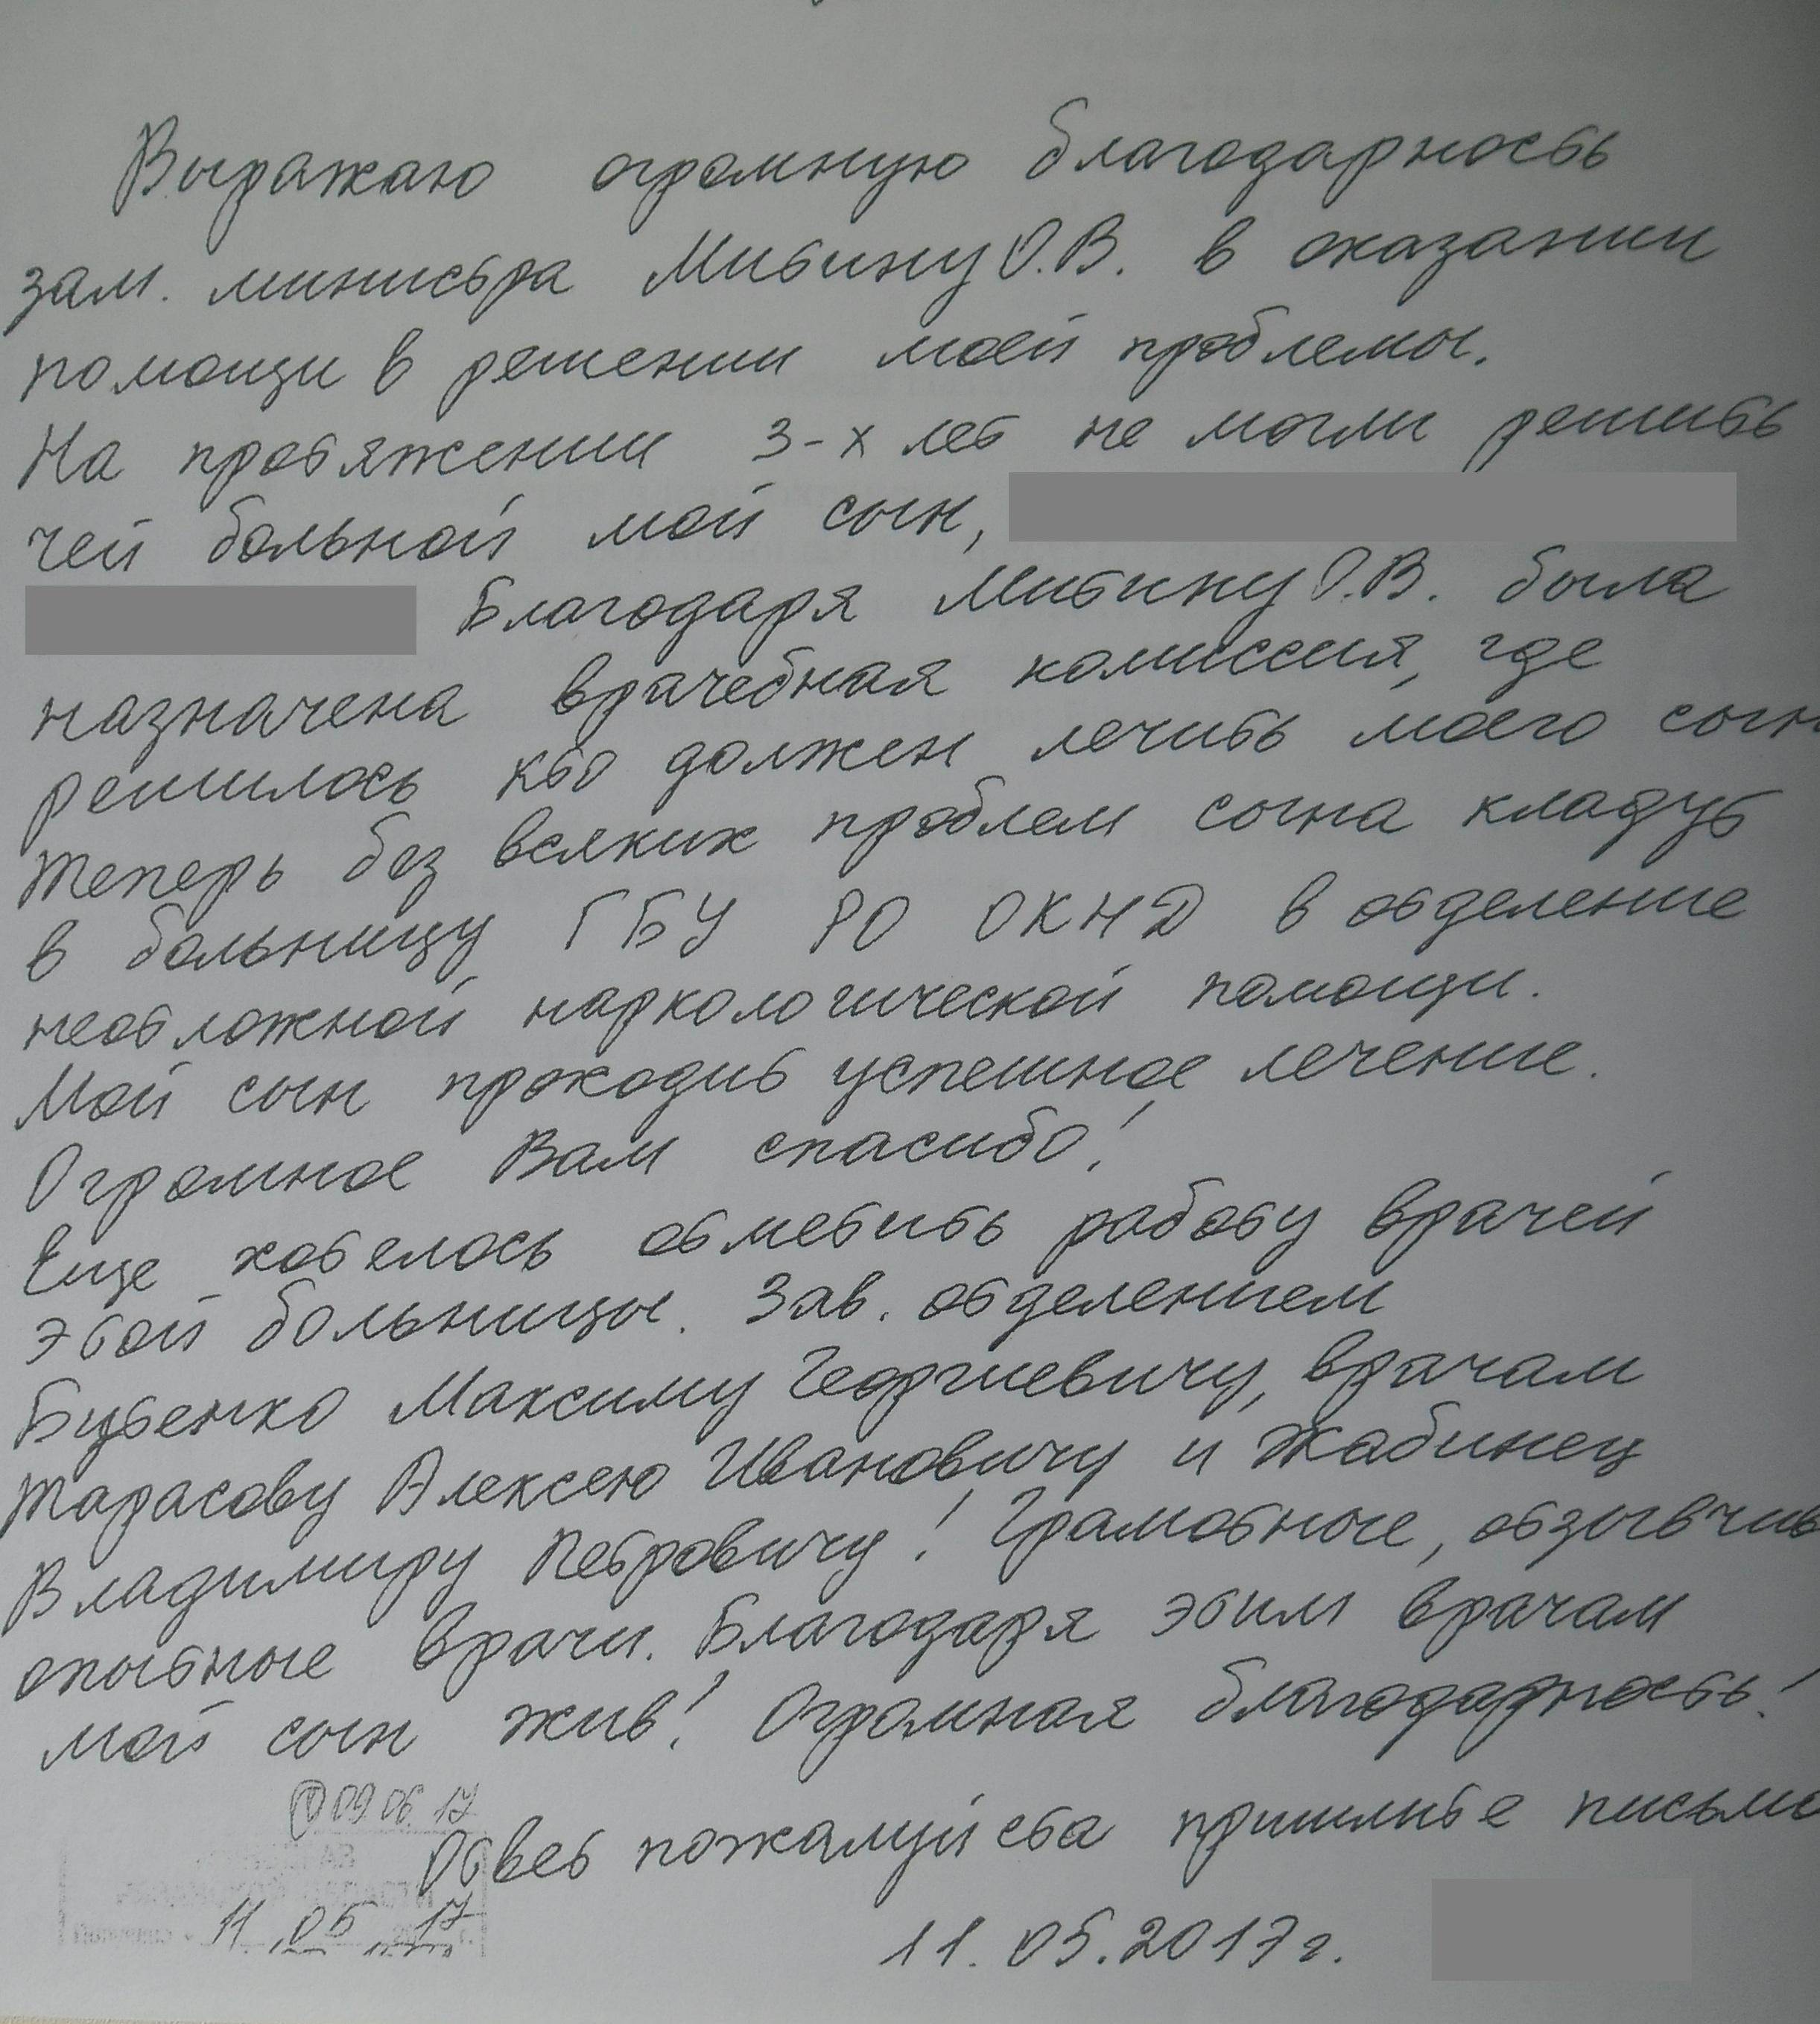 Выражаю огромную благодарность
зам. министра Митину О.В. в оказании
помощи в решении моей проблемы.
На протяжении 3-х лет не могли решить
чей больной мой сын,
Благодаря Митину О.В. была
назначена врачебная комиссия, где
решилось кто должен лечить моего сын
Теперь без всяких проблем сына кладут
в больницу ГБУ РО ОКНД в отделение
неотложной наркологической помощи.
Мой сын проходит успешное лечение.
Огромное Вам спасибо!
Еще хотелось отметить работу врачей
этой больницы. Зав. отделением
Бутенко Максиму Георгиевичу, врачам
Тарасову Алексею Ивановичу и Жабинец
Владимиру Петровичу! Грамотные, отзывчив
опытные врачи. Благодаря этим врачам
мой сын жив! Огромная благодарность!
09 06 17
Ответ пожалуйста пришлите письме
11 05 17
11.05.2017г.